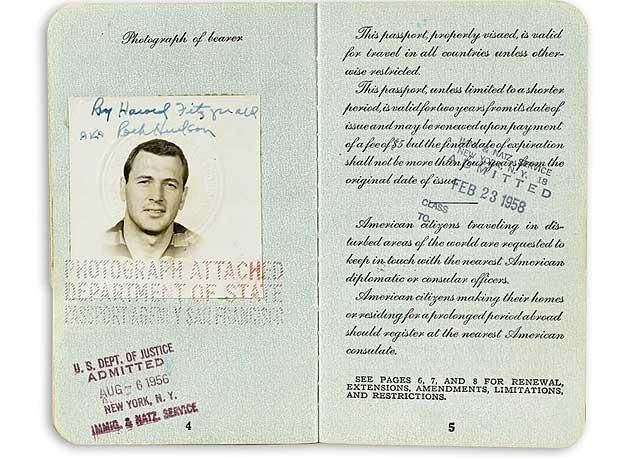 Photograph of bearer
Roy Harold Fitzgerald
AKA Rock Hudson
PHOTOGRAPH ATTACHED
DEPARTMENT OF STATE
PASSPORT AGENCY SAN FRANCISCO
U. S. DEPT. OF JUSTICE
ADMITTED
AUG - 6 1956
NEW YORK, N. Y.
IMMIG. & NATZ. SERVICE
4
This passport, properly visaed, is valid
for travel in all countries unless other-
wise restricted.
This passport, unless limited to a shorter
period, is valid for two years from its date of
issue and may be renewed upon payment
of a fee of $5 but the final date of expiration
shall not be more than four years from the
original date of issue.
& NATZ. SERVICE
NEW YORK, N. Y. 18
ADMITTED
FEB 23 1958
CLASS
TO
American citizens traveling in dis-
turbed areas of the world are requested to
keep in touch with the nearest American
diplomatic or consular officers.
American citizens making their homes
or residing for a prolonged period abroad
should register at the nearest American
consulate.
SEE PAGES 6, 7, AND 8 FOR RENEWAL,
EXTENSIONS, AMENDMENTS, LIMITATIONS,
AND RESTRICTIONS.
5